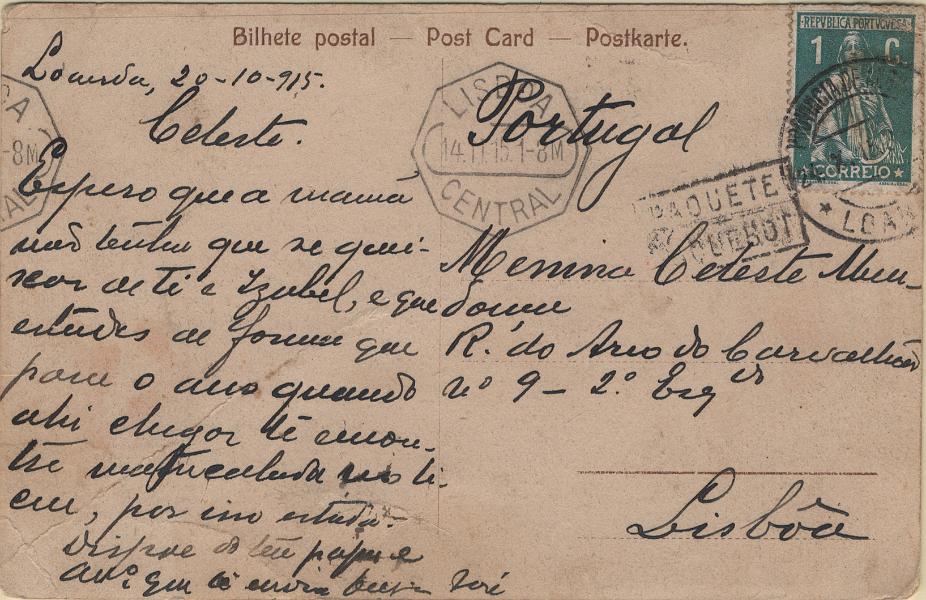 Bilhete postal — Post Card — Postkarte.
REPUBLICA PORTUGUESA
1 C.
CORREIO
PROVINCIA DE
LOAN
LISBOA
14.11.15.1-8M
CENTRAL
-8M
PAQUETE
Loanda, 20-10-915.
Celeste.
Espero que a mamã
não tenha que se quei-
xar de ti e Izabel, e que
estudes de forma que
para o ano quando
ahi chegar te encon-
tre matriculada no li-
ceu, por isso estuda.
Dispoe do teu papá e
que te envia
Portugal
Menina Celeste Mun-
R. do Arco do Carvalhão
nº 9 - 2º Esqdo
Lisbôa